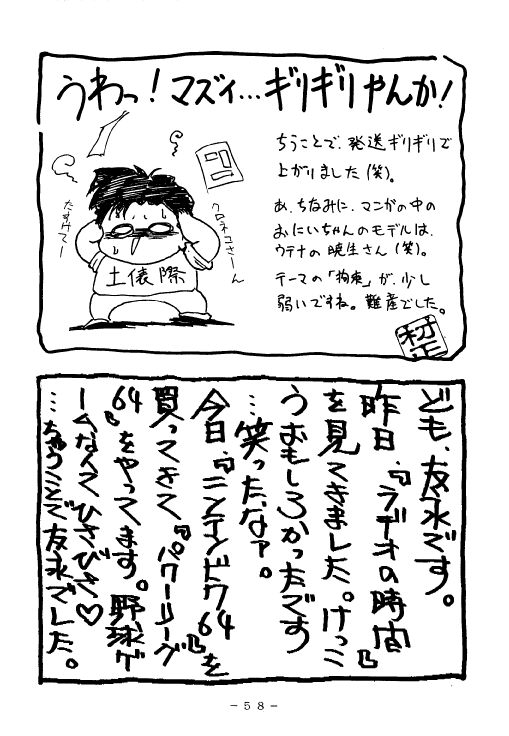 うわっ！マズィ…ギリギリやんか！
ちうことで、発送ギリギリで
上がりました(笑)。
あ、ちなみに、マンガの中の
おにいちゃんのモデルは、
ウテナの暁生さん(笑)。
テーマの「拘束」が、少し
弱いですね。難産でした。
クロネコさーん
たすけてー
土俵際
ども、友永です。
昨日、『ラヂオの時間』
を見てきました。けっこ
うおもしろかったです
…笑ったなァ。
今日、『ニンテンドウ64』を
買ってきて『パワーリーグ
64』をやってます。野球ゲ
ームなんてひさびさ♡
…ちゅうことで友永でした。
-58-